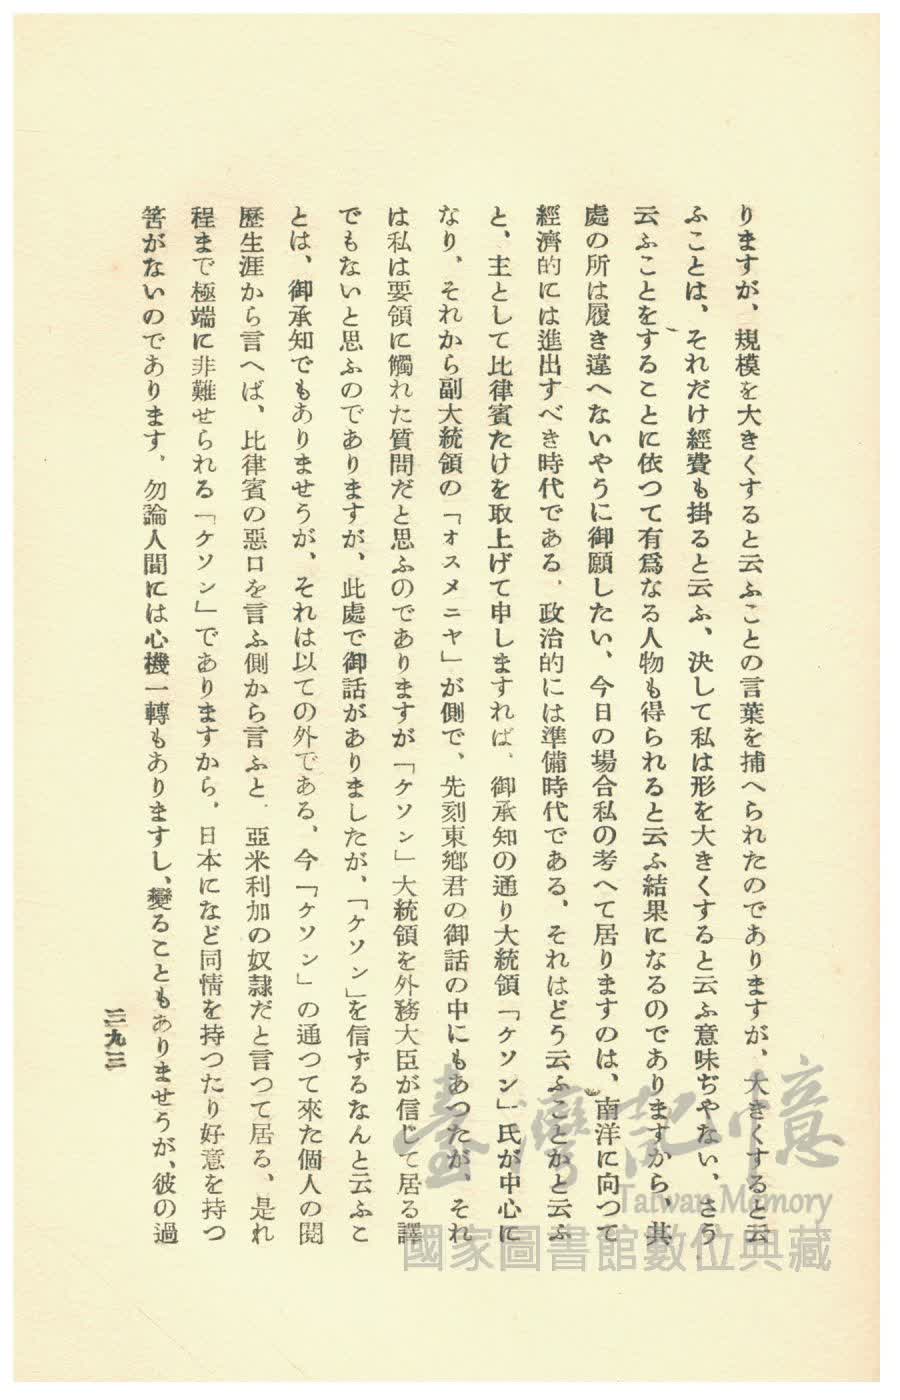 りますが、規模を大きくすると云ふことの言葉を捕へられたのでありますが、大きくすると云
ふことは、それだけ經費も掛ると云ふ、決して私は形を大きくすると云ふ意味ぢやない、さう
云ふことをすることに依つて有爲なる人物も得られると云ふ結果になるのでありますから、其
處の所は履き違へないやうに御願したい、今日の場合私の考へて居りますのは、南洋に向つて
經濟的には進出すべき時代である、政治的には準備時代である、それはどう云ふことかと云ふ
と、主として比律賓たけを取上げて申しますれば、御承知の通り大統領「ケソン」氏が中心に
なり、それから副大統領の「オスメニヤ」が側で、先刻東鄕君の御話の中にもあつたが、それ
は私は要領に觸れた質問だと思ふのでありますが「ケソン」大統領を外務大臣が信じて居る譯
でもないと思ふのでありますが、此處で御話がありましたが、「ケソン」を信ずるなんと云ふこ
とは、御承知でもありませうが、それは以ての外である、今「ケソン」の通つて來た個人の閱
歷生涯から言へば、比律賓の惡口を言ふ側から言ふと、亞米利加の奴隷だと言つて居る、是れ
程まで極端に非難せられる「ケソン」でありますから、日本になど同情を持つたり好意を持つ
筈がないのであります、勿論人間には心機一轉もありますし、變ることもありませうが、彼の過
二九三
臺灣記憶
Taiwan Memory
國家圖書館數位典藏